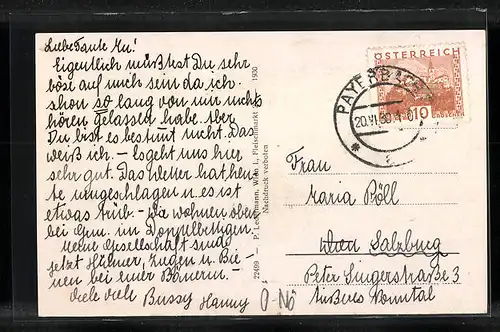 Liebe Tante Mu!
Eigentlich müßtest Du sehr
böse auf mich sein da ich
schon so lang von mir nichts
hören gelassen habe. Aber
Du bist es bestimt nicht. Das
weiß ich. - Es geht uns hier
sehr gut. Das Wetter hat heu-
te umgeschlagen u. es ist
etwas trüb. - Wir wohnen oben
bei
Meine Gesellschaft sind
jetzt Hühner, Ziegen u. Bie-
nen bei einer Bäuerin. -
Viele viele Bussy Hanny
22499 - P. Ledermann, Wien I., Fleischmarkt 1930
Nachdruck verboten
ÖSTERREICH
10 GROSCHEN
PAYERBACH
20.VI.30
Frau
Maria Böll
Wien Salzburg
Peter Singerstraße 3
Äußeres Nonntal